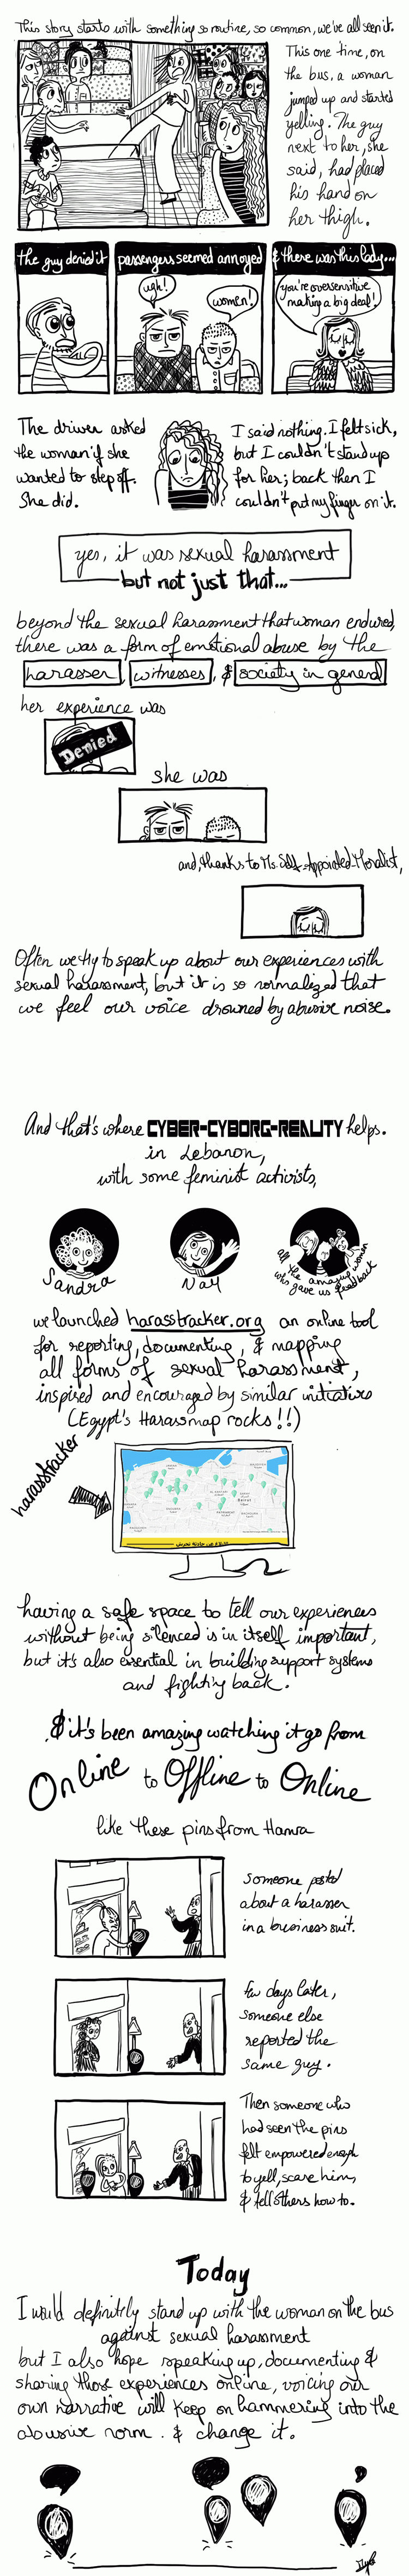 This story starts with something so routine, so common, we've all seen it.
This one time, on
the bus, a woman
jumped up and started
yelling. The guy
next to her, she
said, had placed
his hand on
her thigh.
the guy denied it
passengers seemed annoyed
ugh!
women!
& there was this lady...
you're oversensitive
making a big deal!
The driver asked
the woman if she
wanted to step off.
She did.
I said nothing. I felt sick,
but I couldn't stand up
for her; back then I
couldn't put my finger on it.
yes, it was sexual harassment
but not just that...
beyond the sexual harassment that woman endured,
there was a form of emotional abuse by the
harasser, witnesses, & society in general
her experience was
Denied
she was
and, thanks to Ms. Self-Appointed-Moralist,
Often we try to speak up about our experiences with
sexual harassment, but it is so normalized that
we feel our voice drowned by abusive noise.
And that's where CYBER-CYBORG-REALITY helps.
in Lebanon,
with some feminist activists,
Sandra
Nay
all the amazing women
who gave us feedback
we launched harasstracker.org an online tool
for reporting, documenting, & mapping
all forms of sexual harassment,
inspired and encouraged by similar initiatives
(Egypt's Harassmap rocks!!)
harasstracker
Beirut
having a safe space to tell our experiences
without being silenced is in itself important,
but it's also essential in building support systems
and fighting back.
& it's been amazing watching it go from
Online to Offline to Online
like these pins from Hamra
Someone posted
about a harasser
in a business suit.
few days later,
someone else
reported the
same guy.
Then someone who
had seen the pins
felt empowered enough
to yell, scare him,
& tell others how to.
Today
I would definitely stand up with the woman on the bus
against sexual harassment
but I also hope speaking up, documenting &
sharing those experiences online, voicing our
own narrative will keep on hammering into the
abusive norm. & change it.